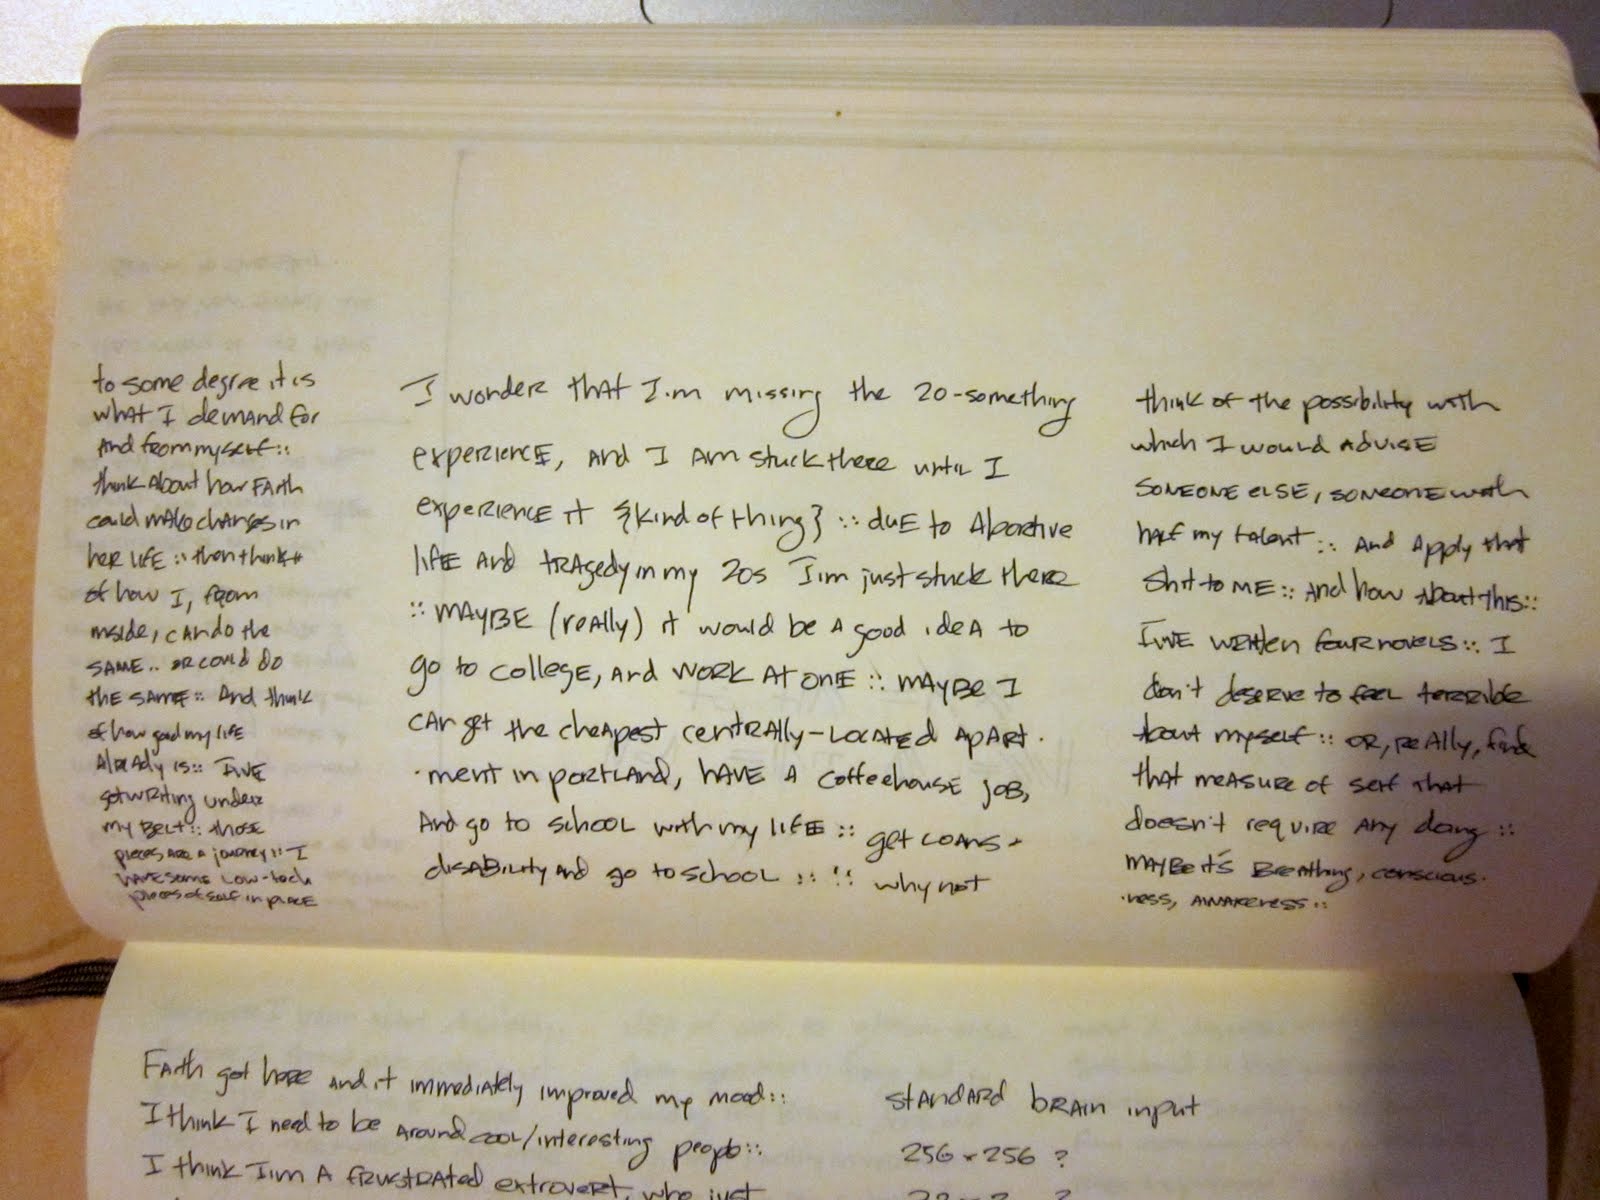 to some degree it is
what I demand for
and from myself ::
think about how Faith
could make changes in
her life :: then think
of how I, from
inside, can do the
same .. or could do
the same :: And think
of how good my life
already is :: I've
got writing under
my belt :: those
pieces are a journey :: I
have some low-tech
pieces of self in place
I wonder that I'm missing the 20-something
experience, and I am stuck there until I
experience it {kind of thing} :: due to abortive
life and tragedy in my 20s I'm just stuck there
:: maybe (really) it would be a good idea to
go to college, and work at one :: maybe I
can get the cheapest centrally-located apart-
-ment in portland, have a coffeehouse job,
And go to school with my life :: get loans +
disability and go to school :: !! why not
think of the possibility with
which I would advise
someone else, someone with
half my talent :: And apply that
shit to me :: And how about this ::
I've written four novels :: I
don't deserve to feel terrible
about myself :: or, really, find
that measure of self that
doesn't require any doing ::
maybe it's breathing, conscious-
-ness, awareness ::
Faith got here and it immediately improved my mood ::
I think I need to be around cool/interesting people ::
I think I'm a frustrated extrovert, who just
standard brain input
256 x 256 ?